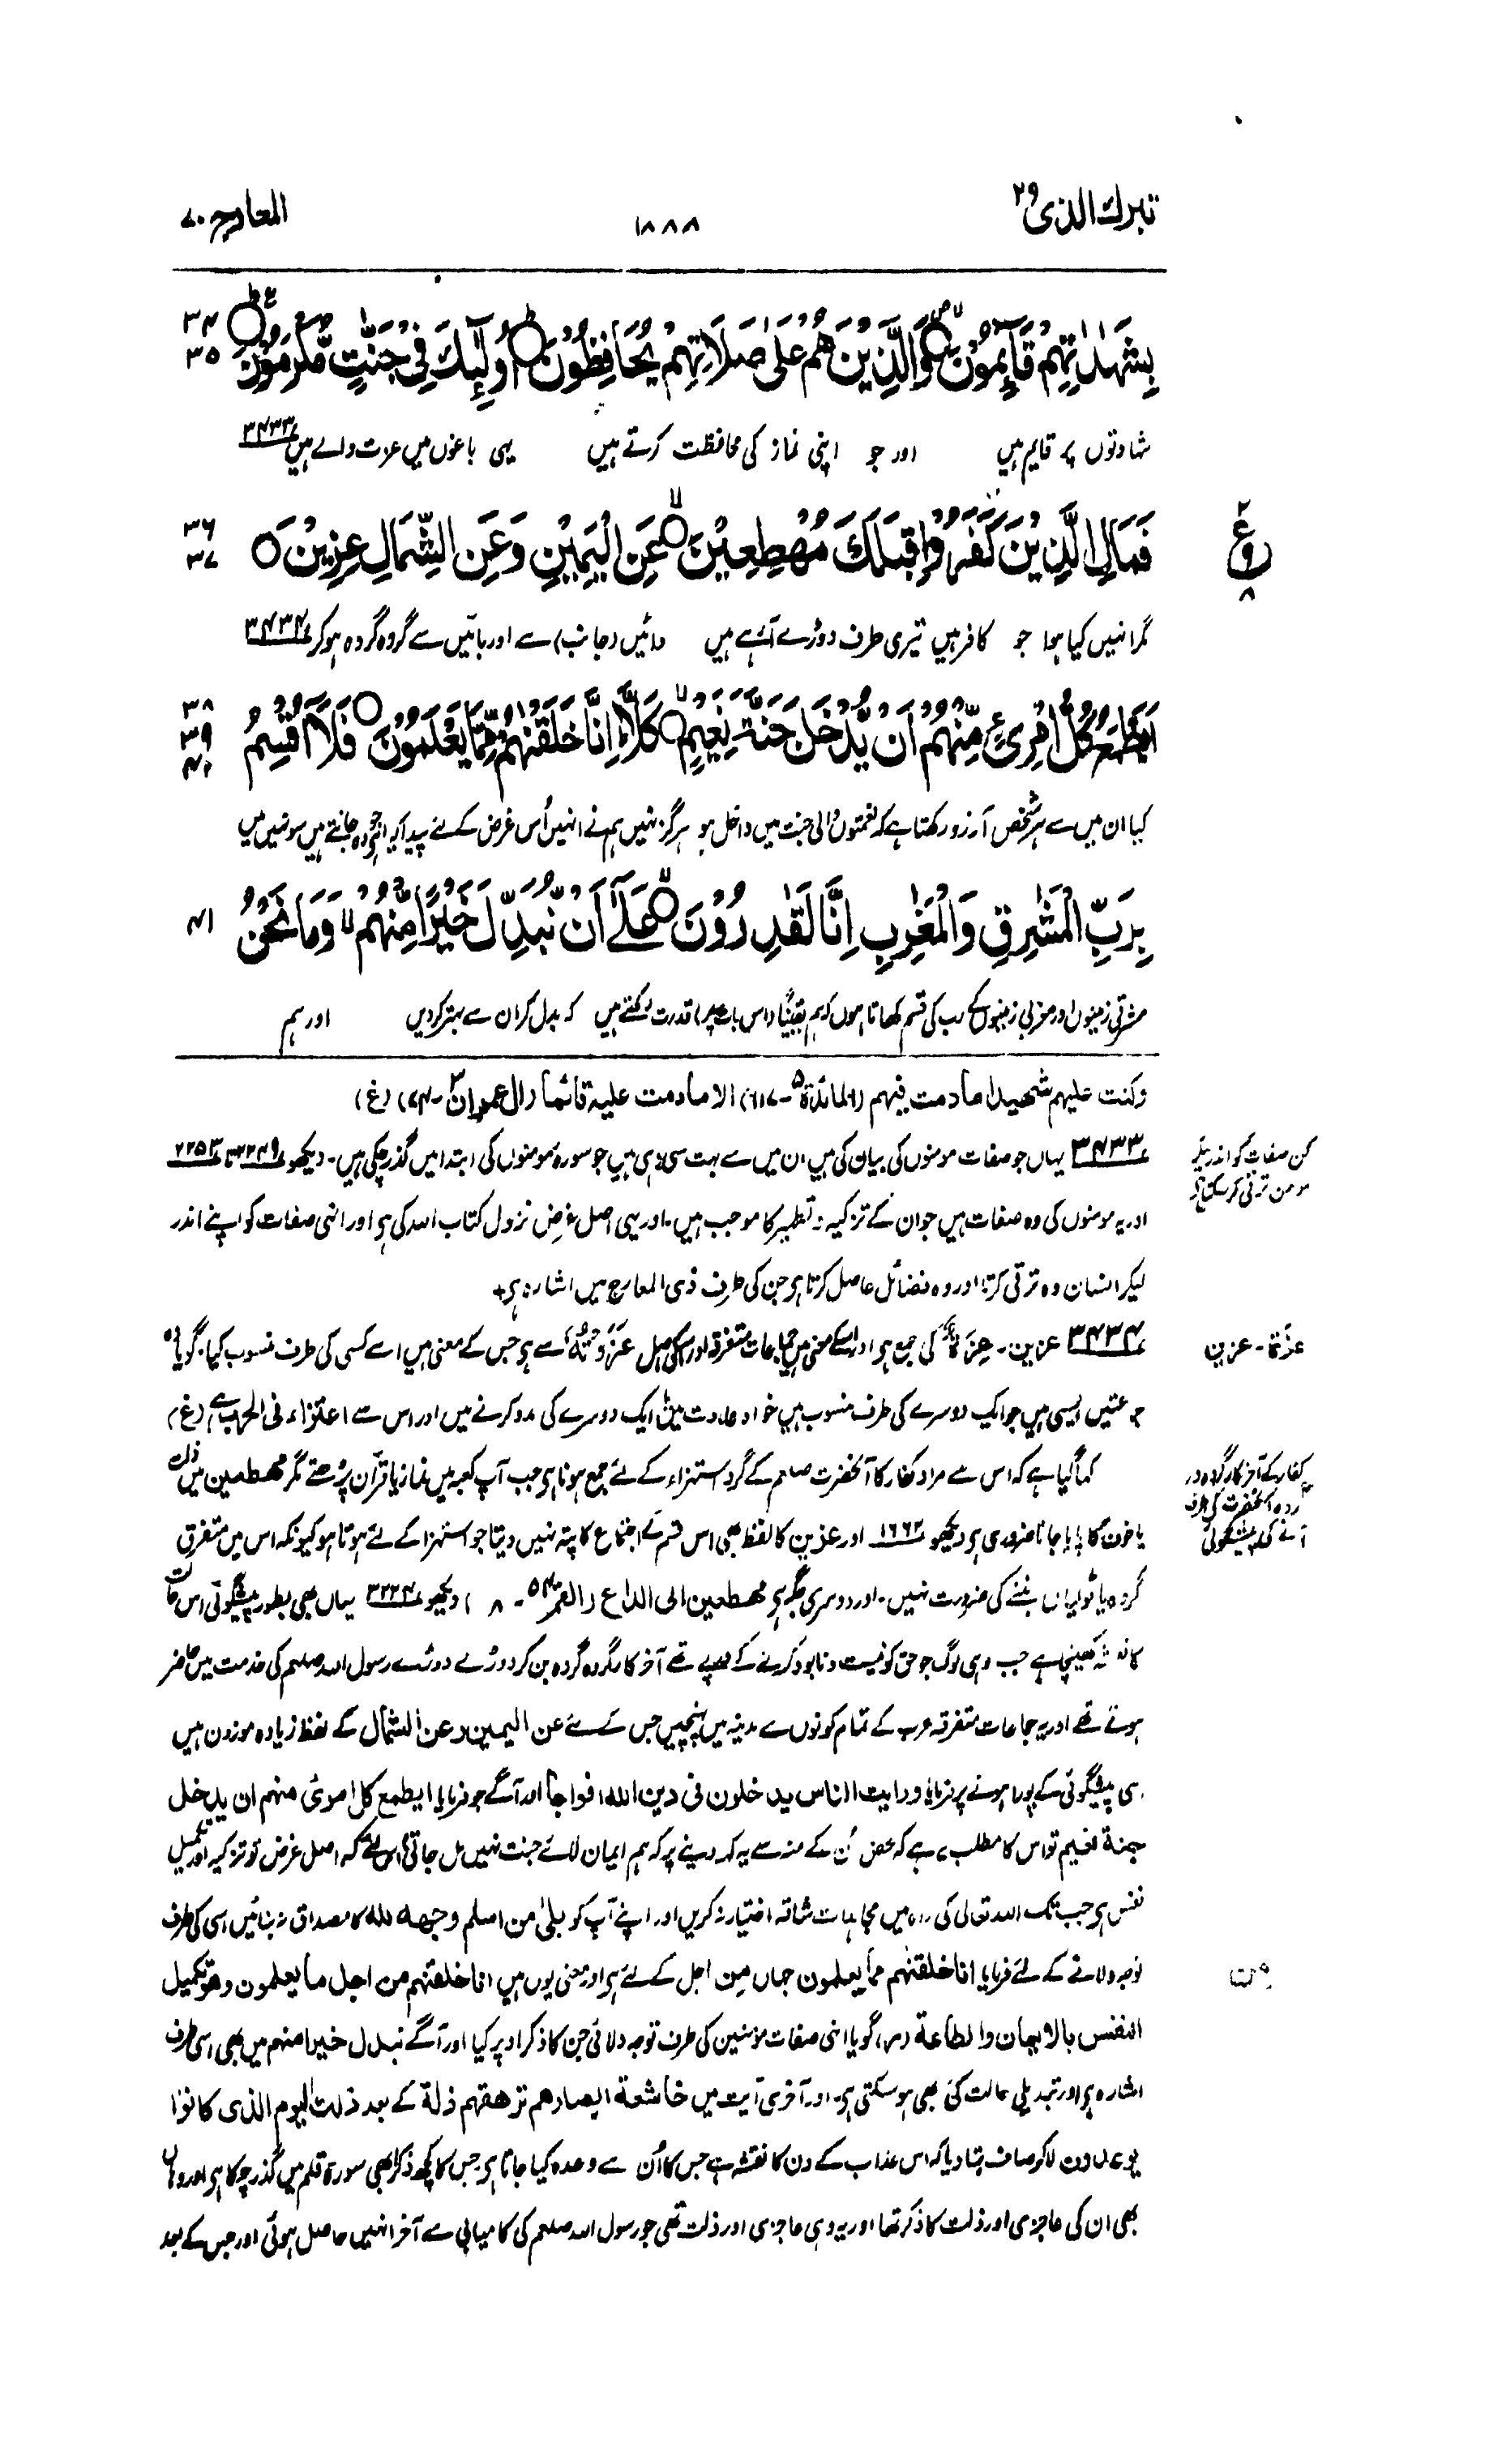 تبرك الذی ٢٩
١٨٨٨
المعارج ٧٠
بِشَهٰدٰتِهِمْ قَآئِمُوْنَ ۝ وَالَّذِيْنَ هُمْ عَلٰى صَلَاتِهِمْ يُحَافِظُوْنَ ۝ اُولٰٓئِكَ فِيْ جَنّٰتٍ مُّكْرَمُوْنَ ۝
٣٤
٣٥
شہادتوں پر قایم ہیں اور جو اپنی نماز کی محافظت کرتے ہیں یہی باغوں میں عزت والے ہیں ٣٤٣٣
فَمَالِ الَّذِيْنَ كَفَرُوْا قِبَلَكَ مُهْطِعِيْنَ ۝ عَنِ الْيَمِيْنِ وَعَنِ الشِّمَالِ عِزِيْنَ ۝
٣٦
٣٧
مگر انہیں کیا ہوا جو کافر ہیں تیری طرف دوڑے آتے ہیں دائیں (جانب) سے اور بائیں سے گروہ گروہ ہوکر ٣٤٣٤
اَيَطْمَعُ كُلُّ امْرِئٍ مِّنْهُمْ اَنْ يُّدْخَلَ جَنَّةَ نَعِيْمٍ ۝ كَلَّا ؕ اِنَّا خَلَقْنٰهُمْ مِّمَّا يَعْلَمُوْنَ ۝ فَلَآ اُقْسِمُ
٣٨
٣٩
٤٠
کیا ان میں سے ہر شخص آرزو رکھتا ہے کہ نعمتوں والی جنت میں داخل ہو ہرگز نہیں ہم نے انہیں اُس غرض کے لئے پیدا کیا جو وہ جانتے ہیں سو نہیں میں
بِرَبِّ الْمَشٰرِقِ وَالْمَغٰرِبِ اِنَّا لَقٰدِرُوْنَ ۝ عَلٰٓى اَنْ نُّبَدِّلَ خَيْرًا مِّنْهُمْ ۙ وَمَا نَحْنُ
٤١
مشرقی زمینوں اور مغربی زمینوں کے رب کی قسم کھاتا ہوں کہ ہم یقینًا (اس بات پر) قدرت رکھتے ہیں کہ بدل کر ان سے بہتر کردیں اور ہم
وکنت علیہم شھیدا مادمت فیہم (المائدة ٥-١١٧) الا مادمت علیہ قائما (ال عمران ٣-٧٤) (غ)
٣٤٣٣ یہاں جو صفات مومنوں کی بیان کی ہیں ان میں سے بہت سی وہی ہیں جو سورہ مومنوں کی ابتدا میں گذر چکی ہیں۔ دیکھو ٢٢٤٩ تا ٢٢٥٣
اور یہ مومنوں کی وہ صفات ہیں جو ان کے تزکیہ و تطہیر کا موجب ہیں۔ اور یہی اصل غرض نزول کتاب اللہ کی ہے اور انہی صفات کو اپنے اندر
لیکر انسان وہ ترقی کرتا اور وہ فضائل حاصل کرتا ہے جن کی طرف ذی المعارج میں اشارہ ہے +
کن صفات کو اندر لیکر
مومن ترقی کر سکتا ہے
٣٤٣٤ عزین۔ عِزَةٌ کی جمع ہے اور اسکے معنی ہیں جماعات متفرقہ اور اسکی اصل عَزَوتُهٗ سے ہے جس کے معنی ہیں اسے کسی کی طرف منسوب کیا۔ گویا وہ
جماعتیں ایسی ہیں جو ایک دوسرے کی طرف منسوب ہیں خواہ ولادت میں یا ایک دوسرے کی مدد کرنے میں اور اس سے اعتزاء فی الحرب ہے (غ)
عِزَةٌ۔ عزین
کہا گیا ہے کہ اس سے مراد کفار کا آنحضرت صلعم کے گرد استہزاء کے لئے جمع ہونا ہے جب آپ کعبہ میں نماز یا قرآن پڑھتے مگر مھطعین میں ذلت
یا خوف کا پایا جانا ضروری ہے دیکھو ١٦٦٢ اور عزین کا لفظ بھی اس قسم کے اجتماع کا پتہ نہیں دیتا جو استہزا کے لئے ہوتا ہو کیونکہ اس میں متفرق
گروہ یا ٹولیاں بننے کی ضرورت نہیں۔ اور دوسری جگہ ہے مھطعین الی الداع (القمر ٥٤-٨) دیکھو ٣٢٢٤ یہاں بھی بطور پیشگوئی اس حالت
کا نقشہ کھینچا ہے جب وہی لوگ جو حق کو نیست و نابود کرنے کے درپے تھے آخر کار گروہ گروہ بن کر دوڑے دوڑے رسول اللہ صلعم کی خدمت میں حاضر
ہوتے تھے اور یہ جماعات متفرقہ عرب کے تمام کونوں سے مدینہ میں پہنچیں جس کے لئے عن الیمین وعن الشمال کے لفظ زیادہ موزون ہیں
اسی پیشگوئی کے پورا ہونے پر فرمایا ورایت الناس یدخلون فی دین اللہ افواجا اور آگے جو فرمایا ایطمع کل امرئ منھم ان یدخل
جنة نعیم تو اس کا مطلب یہ ہے کہ محض اُن کے منہ سے یہ کہہ دینے پر کہ ہم ایمان لائے جنت نہیں مل جاتی اس لئے کہ اصل غرض تو تزکیہ اور تکمیل
نفس ہے جب تک اللہ تعالیٰ کی راہ میں مجاہدات شاقہ اختیار نہ کریں اور اپنے آپ کو بلیٰ من اسلم وجھہ للہ کا مصداق نہ بنائیں اسی کی طرف
توجہ دلانے کے لئے فرمایا انا خلقنٰھم مما یعلمون جہاں من اجل کے لئے ہے اور معنی یوں ہیں انا خلقنٰھم من اجل ما یعلمون وھو تکمیل
النفس بالایمان والطاعة (ر) گویا انہی صفات مومنین کی طرف توجہ دلائی جن کا ذکر اوپر کیا اور آگے نبدل خیرا منھم میں بھی اسی طرف
اشارہ ہے اور تبدیلی حالت کی بھی ہو سکتی ہے۔ اور آخری آیت میں خاشعة ابصارھم ترھقھم ذلة کے بعد ذلك الیوم الذی کانوا
یوعدون لاکر صاف بتادیا کہ اس عذاب کے دن کا نقشہ ہے جس کا اُن سے وعدہ کیا جاتا ہے جس کا کچھ ذکر ابھی سورة قلم میں گذر چکا ہے اور وہاں
بھی ان کی عاجزی اور ذلت کا ذکر تھا اور یہ وہی عاجزی اور ذلت تھی جو رسول اللہ صلعم کی کامیابی سے آخر انہیں حاصل ہوئی اور جس کے بعد
کفار کے آخر کار گروہ در
گروہ آنحضرت کی طرف
آنے کی پیشگوئی
من